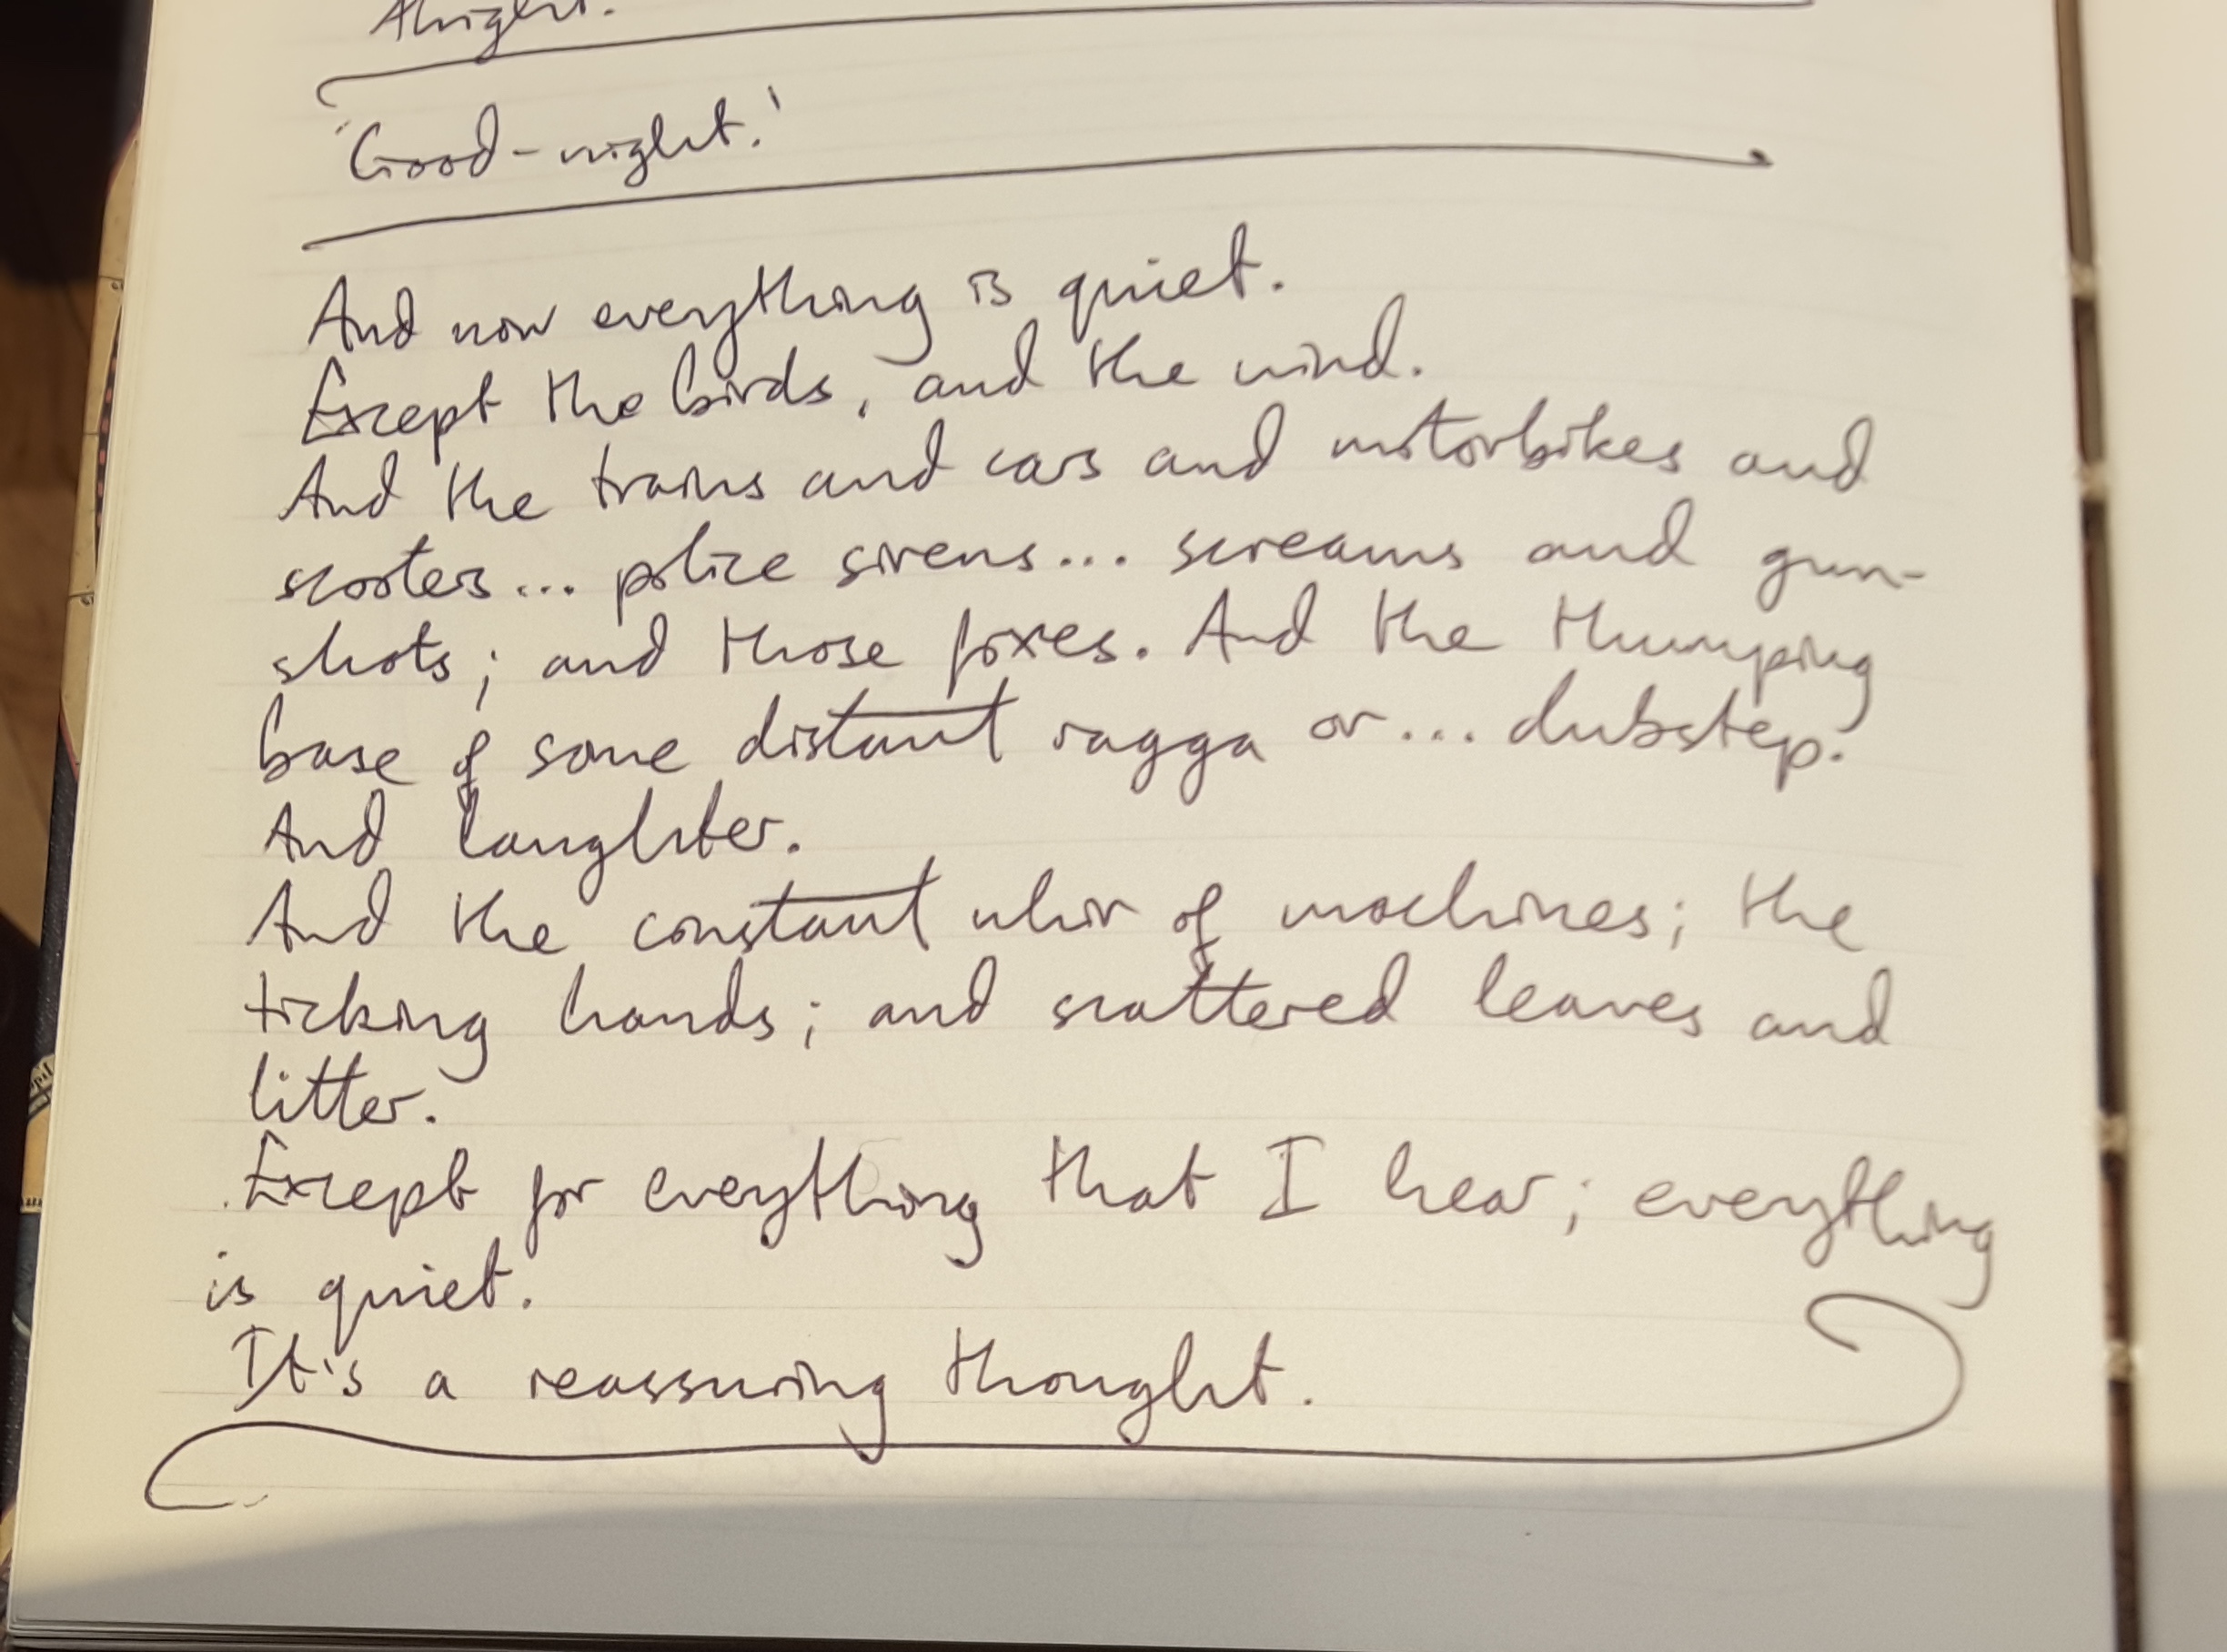 Alright.
'Good-night.'
And now everything is quiet.
Except the birds, and the wind.
And the trains and cars and motorbikes and
scooters... police sirens... screams and gun-
shots; and those foxes. And the thumping
base of some distant ragga or... dubstep.
And laughter.
And the constant whir of machines; the
ticking hands; and scattered leaves and
litter.
Except for everything that I hear; everything
is quiet.
It's a reassuring thought.